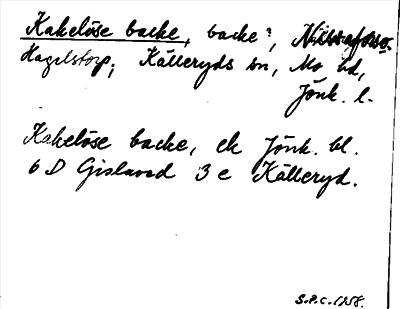 Kakelöse backe, backe?,
Hagelstorp; Källeryds sn, Mo hd,
Jönk. l.
Kakelöse backe, ek Jönk. bl.
6 D Gislaved 3 e Källeryd.
S.P.C. 1958.